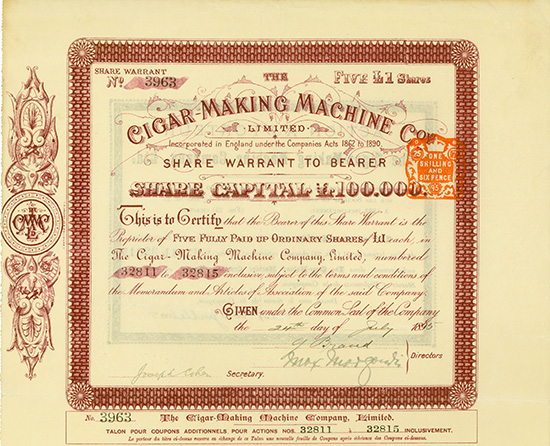 SHARE WARRANT
No. 3963
THE
FIVE £1 Shares
CIGAR-MAKING MACHINE Coy
LIMITED
Incorporated in England under the Companies Acts 1862 to 1890.
SHARE WARRANT TO BEARER
SHARE CAPITAL £100.000.
ONE
SHILLING
AND
SIX PENCE
This is to Certify that the Bearer of this Share Warrant is the
Proprietor of FIVE FULLY PAID UP ORDINARY SHARES £1 each, in
The Cigar-Making Machine Company, Limited, numbered
32811 to 32815 inclusive, subject to the terms and conditions of
the Memorandum and Articles of Association of the said Company.
GIVEN under the Common Seal of the Company
the 24th day of July 1895
Directors
Joseph Cohen Secretary.
No. 3963 The Cigar-Making Machine Company, Limited.
TALON POUR COUPONS ADDITIONNELS POUR ACTIONS NOS. 32811 à 32815 INCLUSIVEMENT.
Le porteur du titre ci-dessus recevra en échange de ce Talon une nouvelle feuille de Coupons après échéance des Coupons ci-dessus.